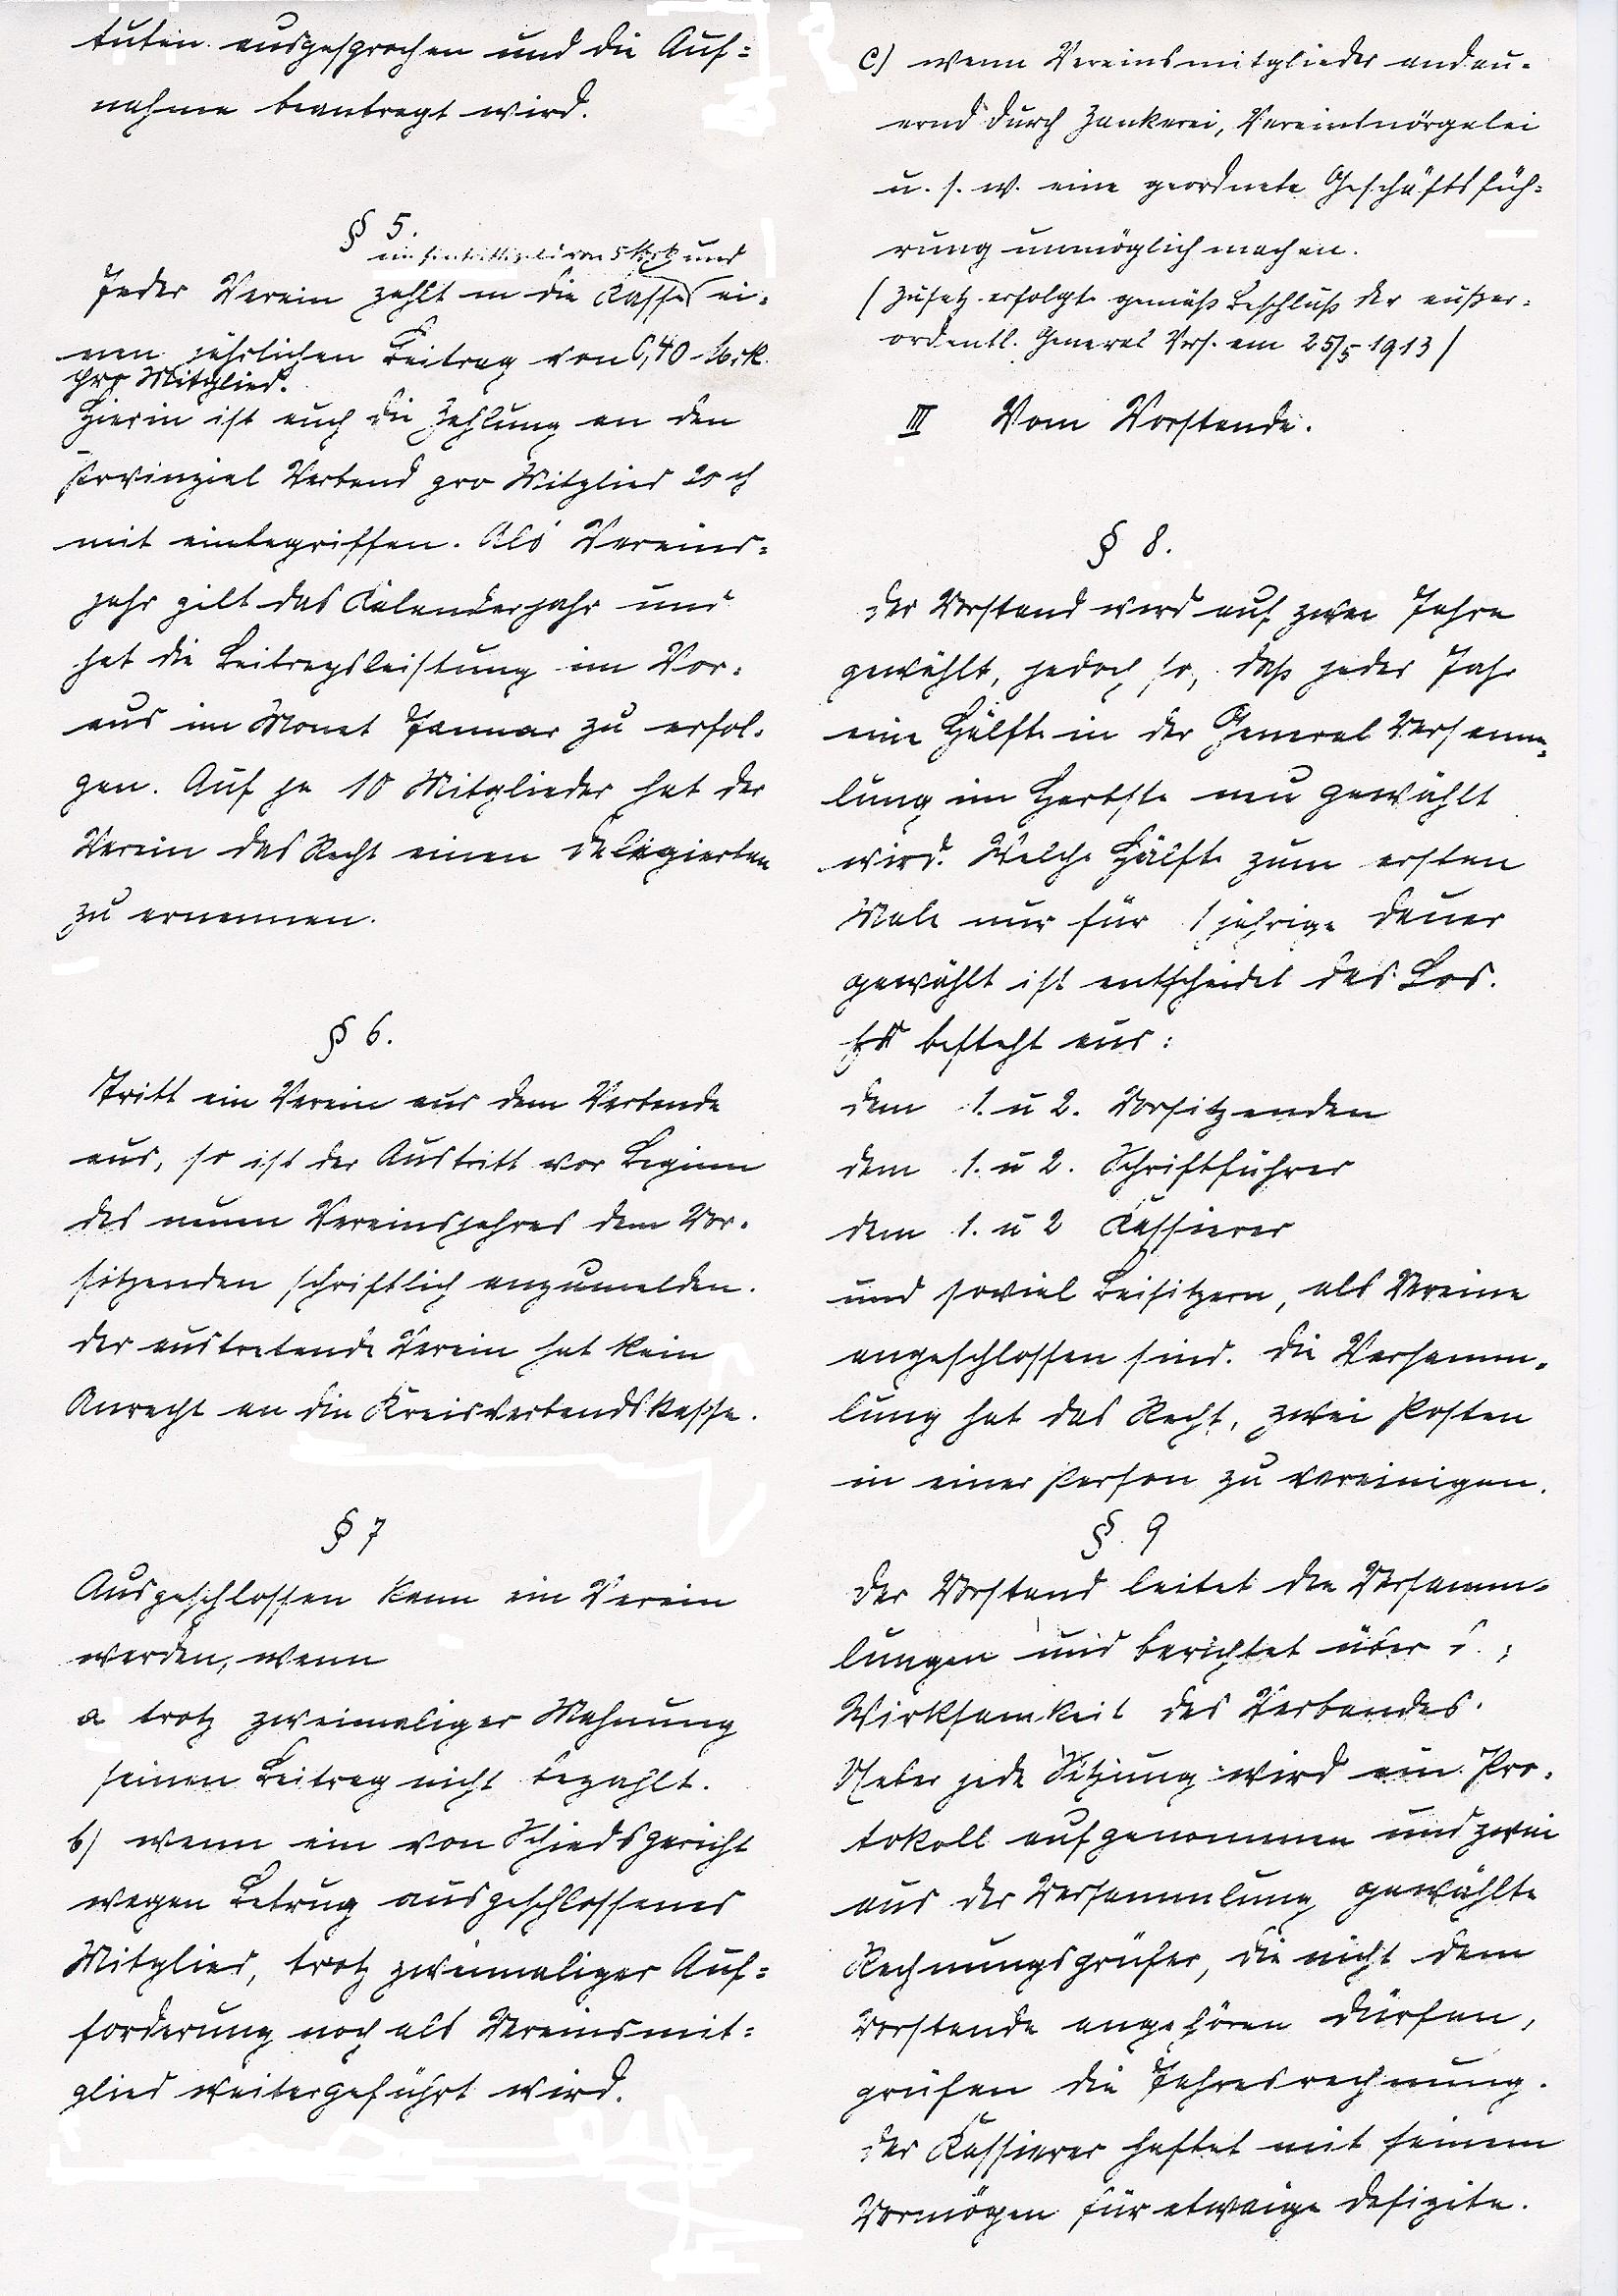 tuten ausgesprochen und die Auf=
nahme beantragt wird.
§ 5.
ein Eintrittsgeld von 5 Mark und
Jeder Verein zahlt in die Kasse ei-
nen jährlichen Beitrag von 0,40 Mrk.
pro Mitglied.
Hierin ist auch die Zahlung an den
Provinzial Verband pro Mitglied 20 ₰
mit einbegriffen. Als Vereins=
jahr gilt das Kalenderjahr und
hat die Beitragsleistung im Vor-
aus im Monat Januar zu erfol-
gen. Auf je 10 Mitglieder hat der
Verein das Recht einen Delegierten
zu ernennen.
§ 6.
Tritt ein Verein aus dem Verbande
aus, so ist der Austritt vor Beginn
des neuen Vereinsjahres dem Vor-
sitzenden schriftlich anzumelden.
Der austretende Verein hat kein
Anrecht an die Kreisverbandskasse.
§ 7
Ausgeschlossen kann ein Verein
werden, wenn
a trotz zweimaliger Mahnung
seinen Beitrag nicht bezahlt.
b) wenn ein von Schiedsgericht
wegen Betrug ausgeschlossenes
Mitglied, trotz zweimaliger Auf=
forderung noch als Vereinsmit=
glied weitergeführt wird.
c) wenn Vereinsmitglieder andau-
ernd durch Zankerei, Vereinsnörgelei
u. s. w. eine geordnete Geschäftsfüh=
rung unmöglich machen.
(Zusatz erfolgte gemäß Beschluß der außer-
ordentl. General Vers. am 25/5 1913)
III Vom Vorstande.
§ 8.
Der Vorstand wird auf zwei Jahre
gewählt, jedoch so, daß jedes Jahr
eine Hälfte in der General Versamm=
lung im Herbste neu gewählt
wird. Welche Hälfte zum ersten
Male nur für 1 jährige Dauer
gewählt ist entscheidet das Los.
Es besteht aus:
dem 1. u 2. Vorsitzenden
dem 1. u 2. Schriftführer
dem 1. u 2 Kassierer
und soviel Beisitzern, als Vereine
angeschlossen sind. Die Versamm-
lung hat das Recht, zwei Posten
in einer Person zu vereinigen.
§. 9
Der Vorstand leitet die Versamm-
lungen und berichtet über
Wirksamkeit des Verbandes.
Ueber jede Sitzung wird ein Pro-
tokoll aufgenommen und zwei
aus der Versammlung gewählte
Rechnungsprüfer, die nicht dem
Vorstande angehören dürfen,
prüfen die Jahresrechnung.
Der Kassierer haftet mit seinem
Vermögen für etwaige Defizite.